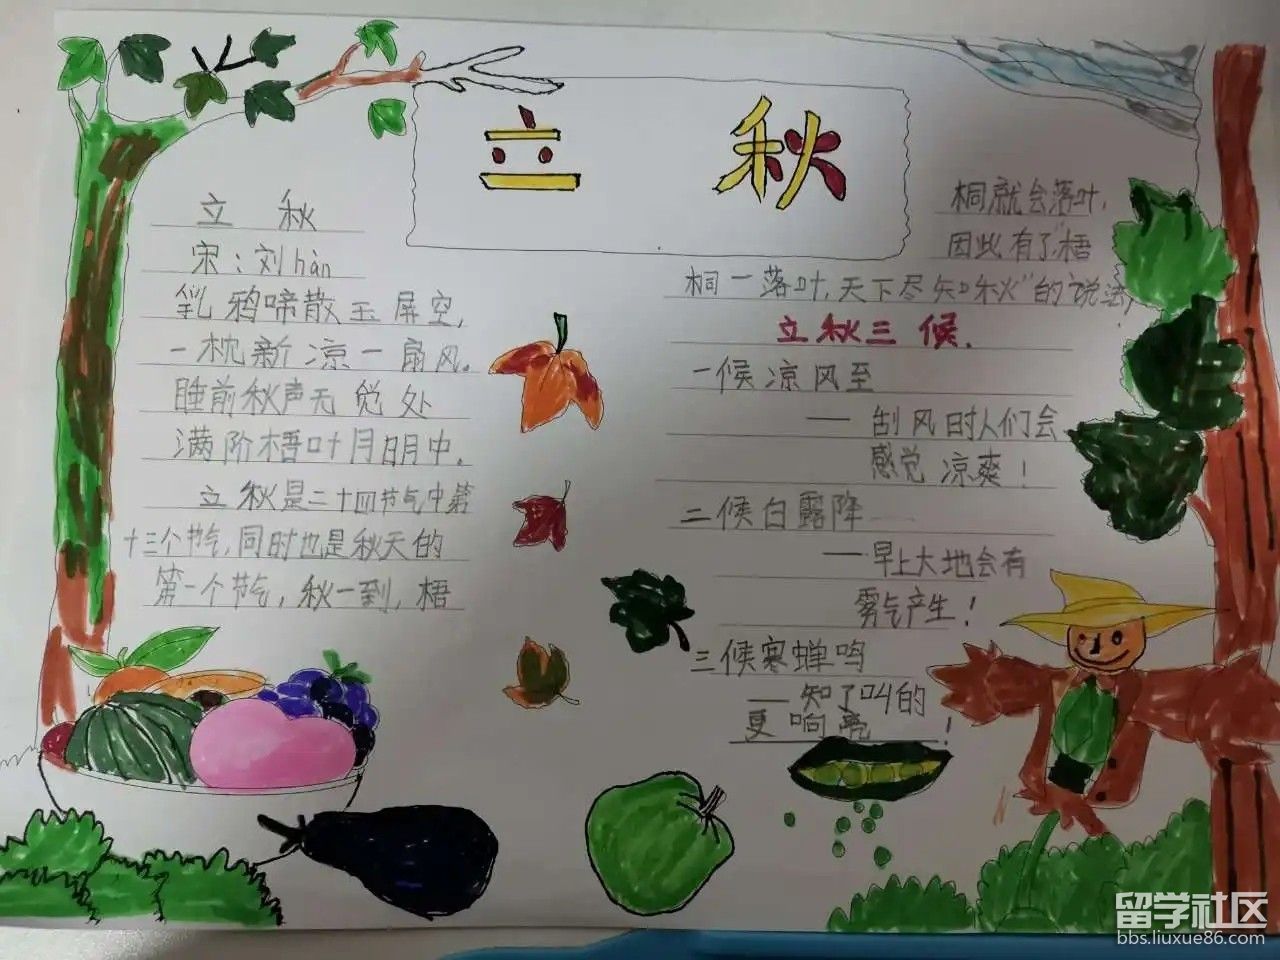 立 秋
立 秋
宋：刘hàn
乳鸦啼散玉屏空，
一枕新凉一扇风。
睡前秋声无觉处
满阶梧叶月明中。
立秋是二十四节气中第
十三个节气，同时也是秋天的
第一个节气，秋一到，梧
桐就会落叶，
因此有了"梧
桐一落叶，天下尽知秋"的说法，
立秋三候．
一候凉风至
——刮风时人们会
感觉凉爽！
二候白露降
——早上大地会有
雾气产生！
三候寒蝉鸣
——知了叫的
更响亮！
留学社区
bbs.liuxue86.com